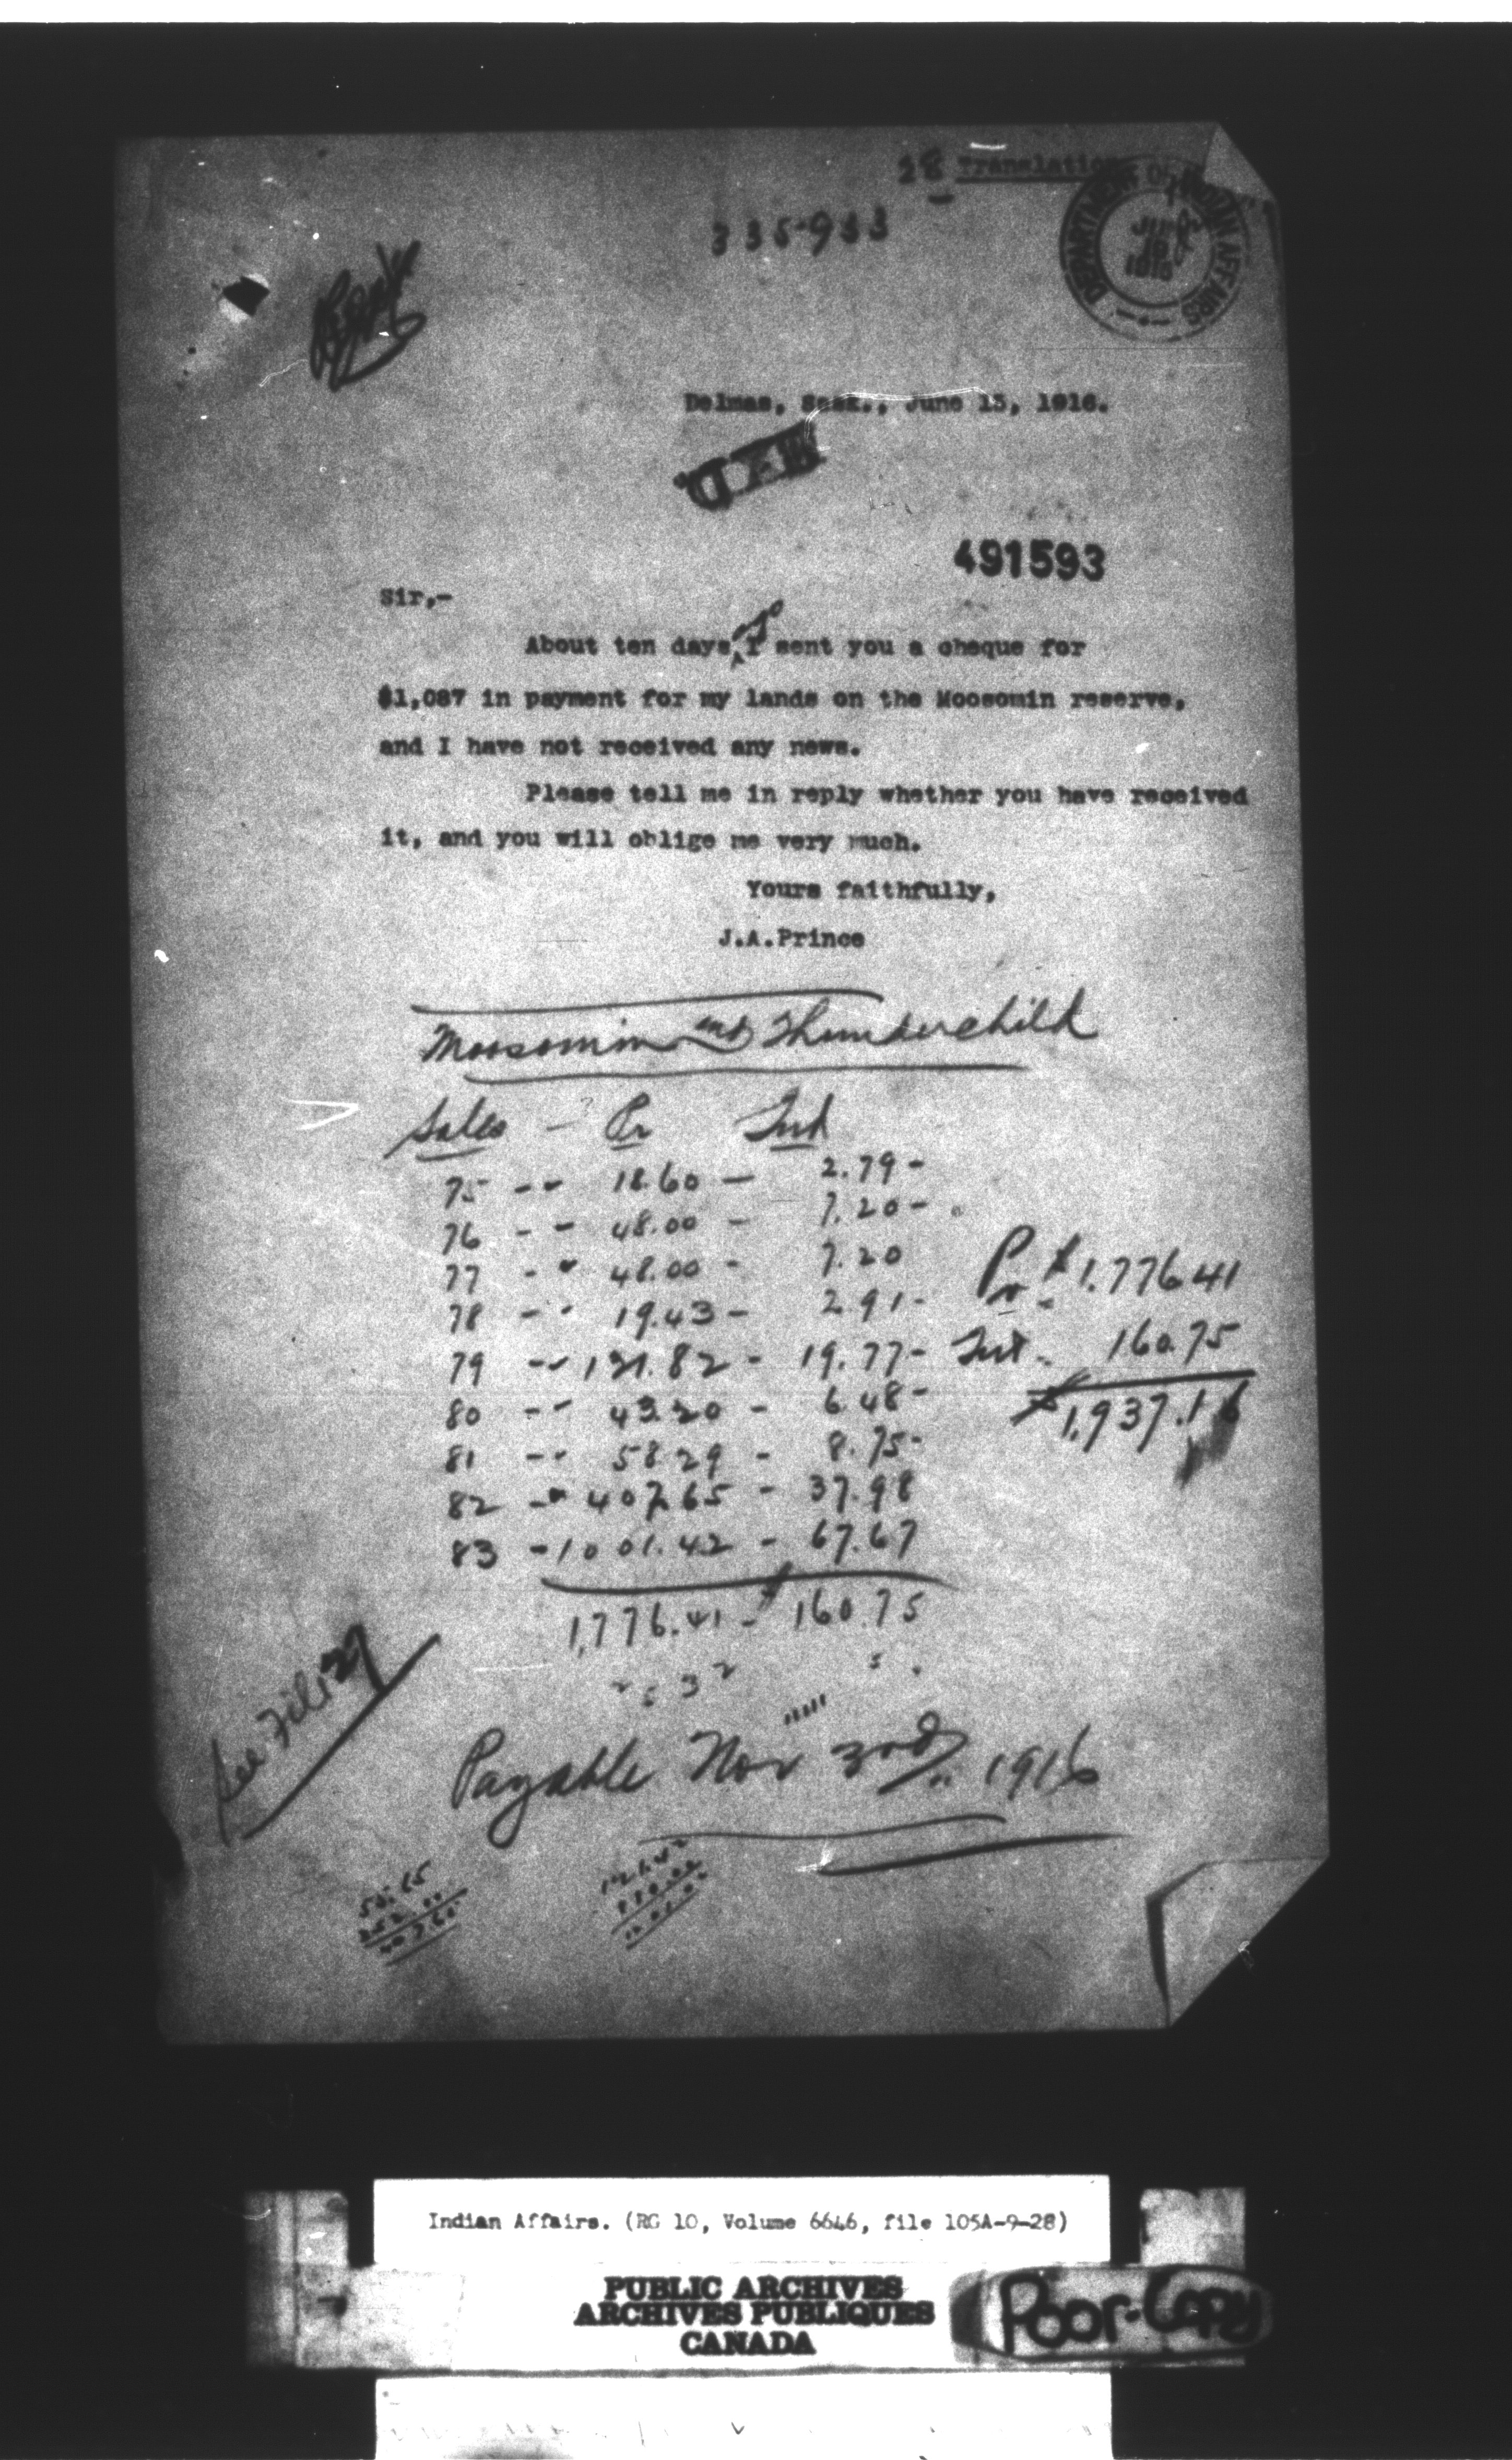 28 Translation
335-933
DEPARTMENT OF INDIAN AFFAIRS
1916
Delmas, Sask., June 15, 1916.
491593
Sir,-
About ten days ago I sent you a cheque for
$1,087 in payment for my lands on the Moosomin reserve,
and I have not received any news.
Please tell me in reply whether you have received
it, and you will oblige me very much.
Yours faithfully,
J.A.Prince
Moosomin and Thunderchild
Sales - Pr Int
75 -- 18.60 - 2.79 -
76 -- 48.00 - 7.20 -
77 -- 48.00 - 7.20
78 -- 19.43 - 2.91 -
79 -- 131.82 - 19.77 -
80 -- 43.20 - 6.48 -
81 -- 58.29 - 8.75 -
82 -- 407.65 - 37.98
83 - 1001.42 - 67.67
1,776.41 - $160.75
Pr $1,776.41
Int. 160.75
$1,937.16
See File 27
Payable Nov 3rd 1916
Indian Affairs. (RG 10, Volume 6646, file 105A-9-28)
PUBLIC ARCHIVES
ARCHIVES PUBLIQUES
CANADA
Poor-Copy